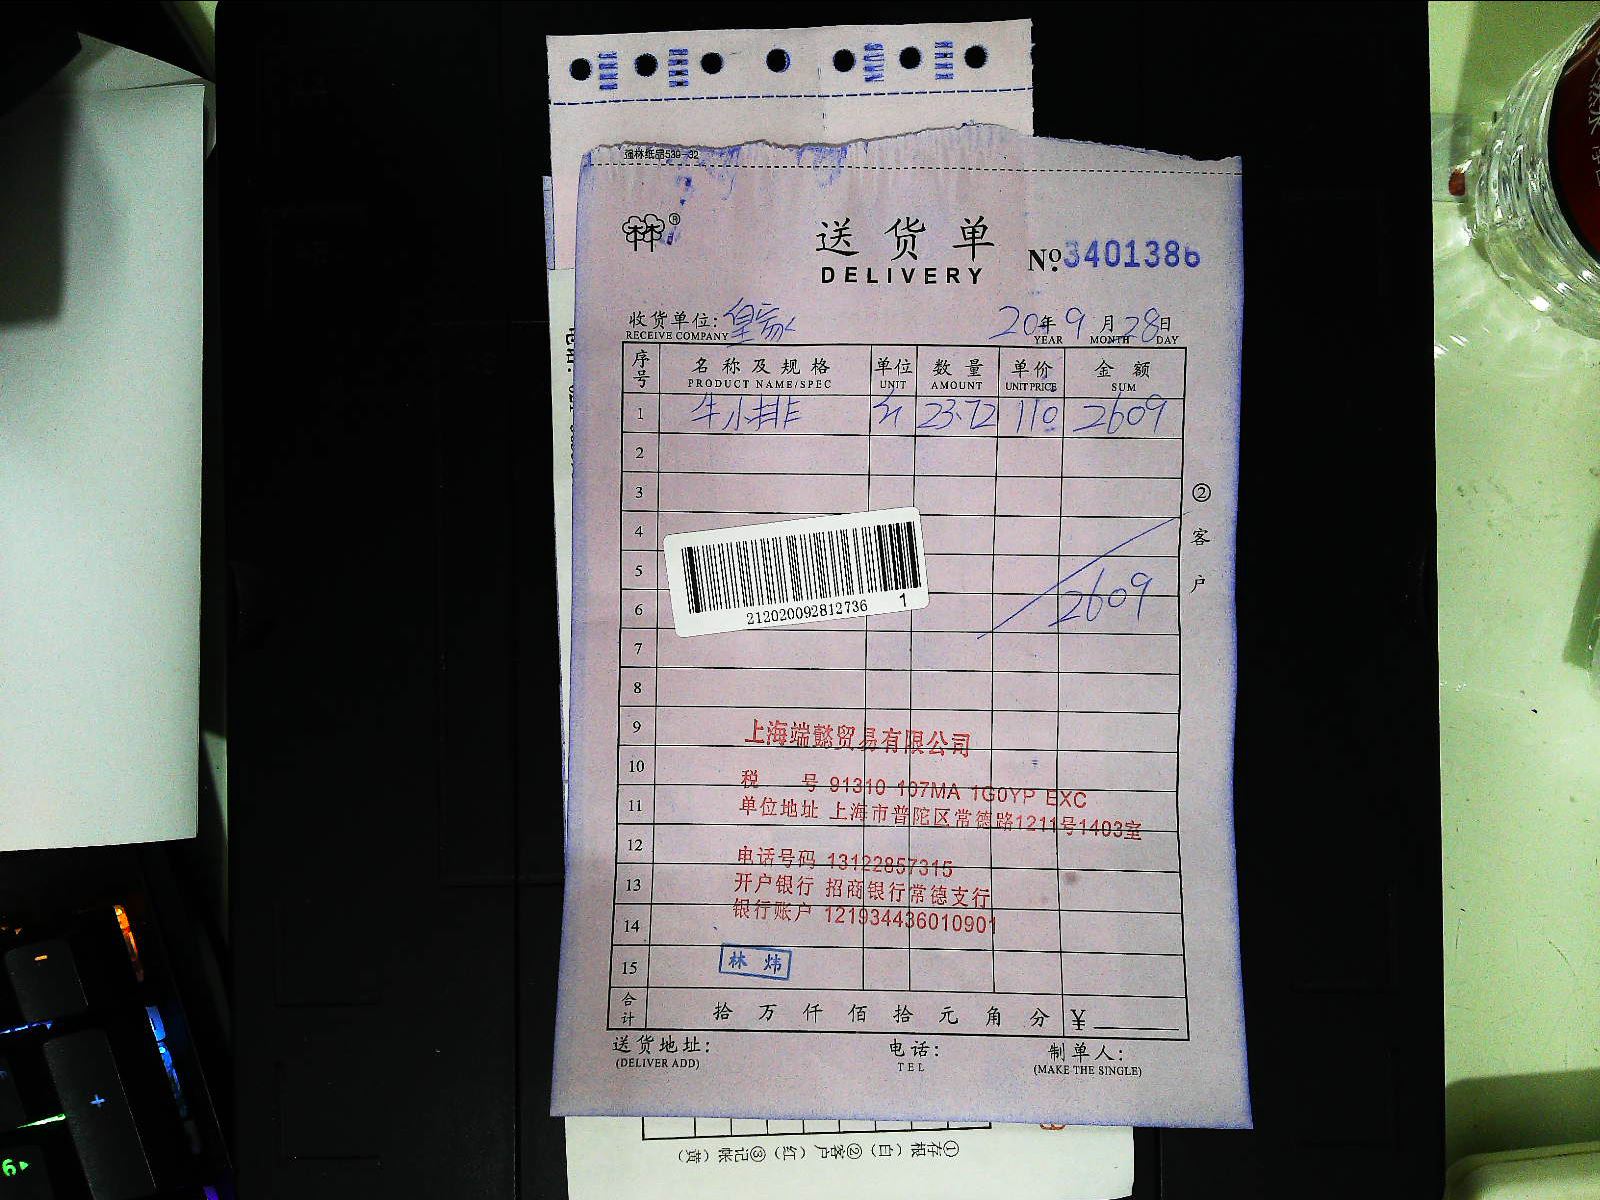 强林纸品539-32
林林®
送货单
DELIVERY
No.3401386
收货单位:
RECEIVE COMPANY
20年9月28日
YEAR MONTH DAY
序号 名称及规格 单位 数量 单价 金额
PRODUCT NAME/SPEC UNIT AMOUNT UNIT PRICE SUM
1 牛小排 斤 23.72 110 2609
2
3
4
5
6 2609
7
8
9
10
11
12
13
14
15
212020092812736 1
上海端懿贸易有限公司
税 号 91310 107MA 1G0YP EXC
单位地址 上海市普陀区常德路1211号1403室
电话号码 13122857315
开户银行 招商银行常德支行
银行账户 121934436010901
林 炜
合计 拾 万 仟 佰 拾 元 角 分 ¥
送货地址: 电话: 制单人:
(DELIVER ADD) TEL (MAKE THE SINGLE)
②客户
①存根(白)②客户(红)③记帐(黄)